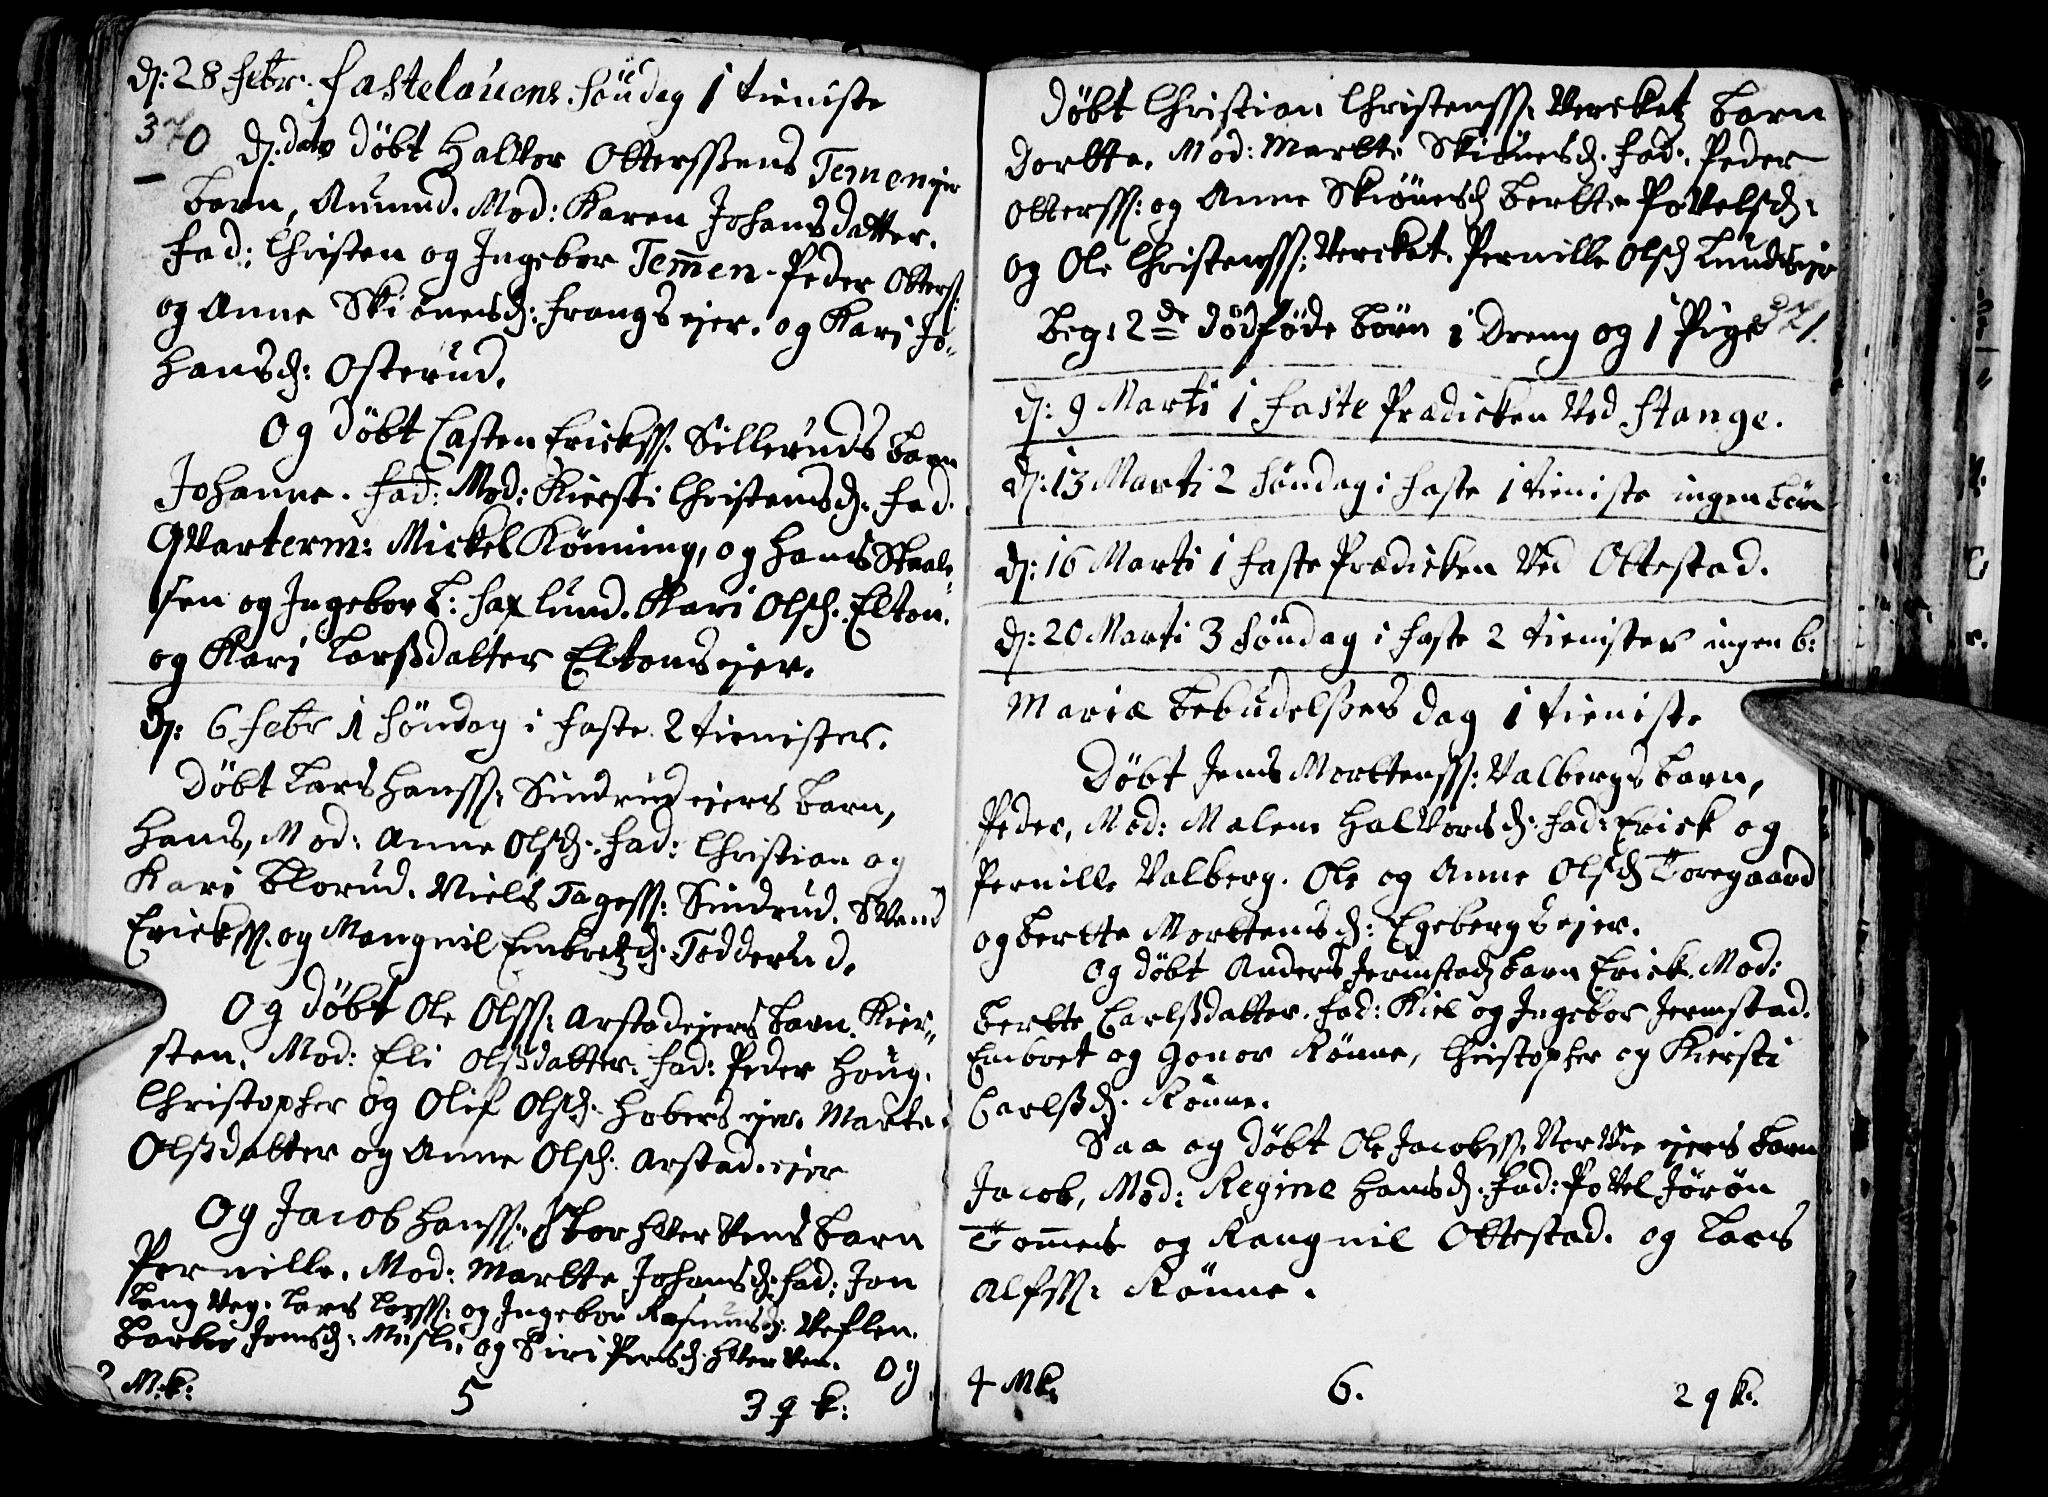 dj: 28 febr. fastelauens Söndag 1 tieniste
370 dj: dato döbt Haltor Otterssens Temenejer
barn, Amund. Mod: Karen Johansdatter.
fad: Christen og Ingebor Temmen. Peder Otterss:
og Anne Skiönesd: frangsejer. og Kari Jo=
hansd: Osterud.
Og döbt Casten Erickss. Sillerunds barn
Johanne. fad: Mod: Kiersti Christensd. fad.
QVarterm: Mickel Könning, og Hans Skaal=
sen og Ingebor b: Faxlund. Kari Olsd. Elton.
og Kari Larsdatter Eltonsejer.
dj: 6 febr 1 Söndag i faste 2 tienister.
Döbt Lars Hanss: Sindrud ejers barn,
Hans, Mod: Anne Olsd. fad: Christian og
Kari Blorud. Niels Tagess: Sindrud. SVend
Erickss. og Mangnil Embretzd. Todderud.
Og döbt Ole Olss: Arstadejers barn. Kier=
sten. Mod: Eli Olsdatter. fad: Peder Houg.
Christopher og Olif Olsd. Hobers ejer. Marte
Olsdatter og Anne Olsd. Arstad. ejer
Og Jacob Hanss. StorHverVens barn
Pernille. Mod: Martte Johansd. fad: Jon
LangVeg. Lars Larss: og Ingebor Rasmusd. Veflen.
Barbro Jonsd: Misli, og Siri Persd. HverVen.
Og
2 Mk: 5 3 q k:
Döbt Christian Christenss: Vercket barn
Dortte. Mod: Martte Skiönesd. fad: Peder
Otterss: og Anne Skiönesd Bertte PoVelsd:
og Ole Christenss: Vercket. Pernille Olsd Lundsejer
Beg: 2de dödföde börn 1 Dreng og 1 Pige 371.
dj: 9 Marti 1 faste Prædicken Ved Stange.
dj: 13 Marti 2 Söndag i faste 1 tieniste ingen börn
dj: 16 Marti 1 faste Prædicken Ved Ottestad.
dj: 20 Marti 3 Söndag i faste 2 tienister ingen b:
Mariæ Bebudelses dag 1 tieniste
Döbt Jens Mortenss: Valbergs barn,
Peder, Mod: Malene HalVorsd. fad: Erick og
Pernille Valberg. Ole og Anne Olsd Toregaard
og Bertte Mortensd: Egebergsejer.
Og döbt Anders Jermstadz barn Erick. Mod:
Bertte Carlsdatter. fad: Kiel og Ingebor Jermstad.
Embret og Gonor Rönne, Christopher og Kiersti
Carlsd. Rönne.
Saa og döbt Ole Jacobss. NorVie ejers barn
Jacob, Mod: Regine Hansd. fad: PoVel Jörön
Tommes og Rangnil Ottestad. og Lars
Alfss: Rönne.
4 Mk. 6. 2 q k.